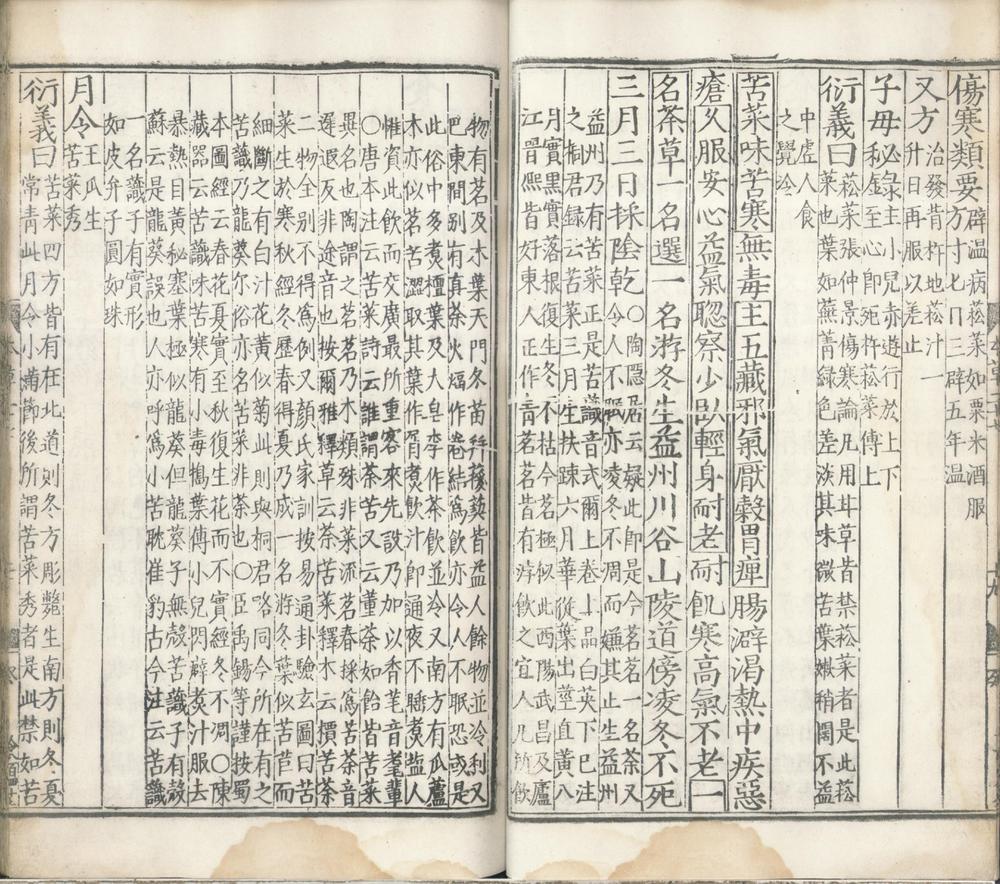 傷寒類要辟溫病菘菜如粟米酒服
方寸七日三辟五年溫
又方治發背杵地菘汁一
升日再服以差止
子母秘錄主小兒赤遊行於上下
至心即死杵菘菜傅上
衍義曰菘菜張仲景傷寒論凡用甘草皆禁菘菜者是此菘
菜也葉如蕪菁綠色差淡其味微苦葉嫩稍闊不益
中虛人食
之覺冷
苦菜味苦寒無毒主五藏邪氣厭穀胃痺腸澼渴熱中疾惡
瘡久服安心益氣聰察少臥輕身耐老耐飢寒高氣不老一
名荼草一名選一名游冬生益州川谷山陵道傍凌冬不死
三月三日採陰乾○陶隱居云疑此即是今茗茗一名荼又
令人不眠亦凌冬不凋而嫌其止生益州
益州乃有苦菜正是苦䕲音式爾上卷上品白英下已注
之桐君録云苦菜三月生扶疎六月華從葉出莖直黃八
月實黑實落根復生冬不枯今茗極似此西陽武昌及廬
江晉熙皆好東人正作青茗茗皆有浡飲之宜人凡所飲
物有茗及木葉天門冬苗并菝葜皆益人餘物並冷利又
巴東間別有真荼火煏作卷結為飲亦令人不眠恐或是
此俗中多煮檀葉及大皂李作荼飲並冷又南方有瓜蘆
木亦似茗苦澀取其葉作屑煮飲汁即通夜不睡煮鹽人
惟資此飲而交廣最所重客來先設乃加以香芼音耄輩
○唐本注云苦菜詩云誰謂荼苦又云堇荼如飴皆苦菜
異名也陶謂之茗茗乃木類殊非菜流茗春採為苦荼音
遲遐反非途音也按爾雅釋草云荼苦菜釋木云檟苦荼
二物全別不得為例又顏氏家訓按易通卦驗玄圖曰苦
菜生於寒秋經冬歷春得夏乃成一名游冬葉似苦苣而
細斷之有白汁花黃似菊此則與桐君略同今所在有之
苦䕲乃龍葵尓俗亦名苦菜非荼也○臣禹錫等謹按蜀
本圖經云春花夏實至秋復生花而不實經冬不凋○陳
藏器云苦䕲味苦寒有小毒搗葉傅小兒閃癖煮汁服去
暴熱目黃秘塞葉極似龍葵但龍葵子無殼苦䕲子有殼
蘇云是龍葵誤也人亦呼為小苦耽崔豹古今注云苦䕲
一名䕲子有實形
如皮弁子圓如珠
月令王瓜生
苦菜秀
衍義曰苦菜四方皆有在北道則冬方彫斃生南方則冬夏
常青此月令小滿節後所謂苦菜秀者是此禁如苦